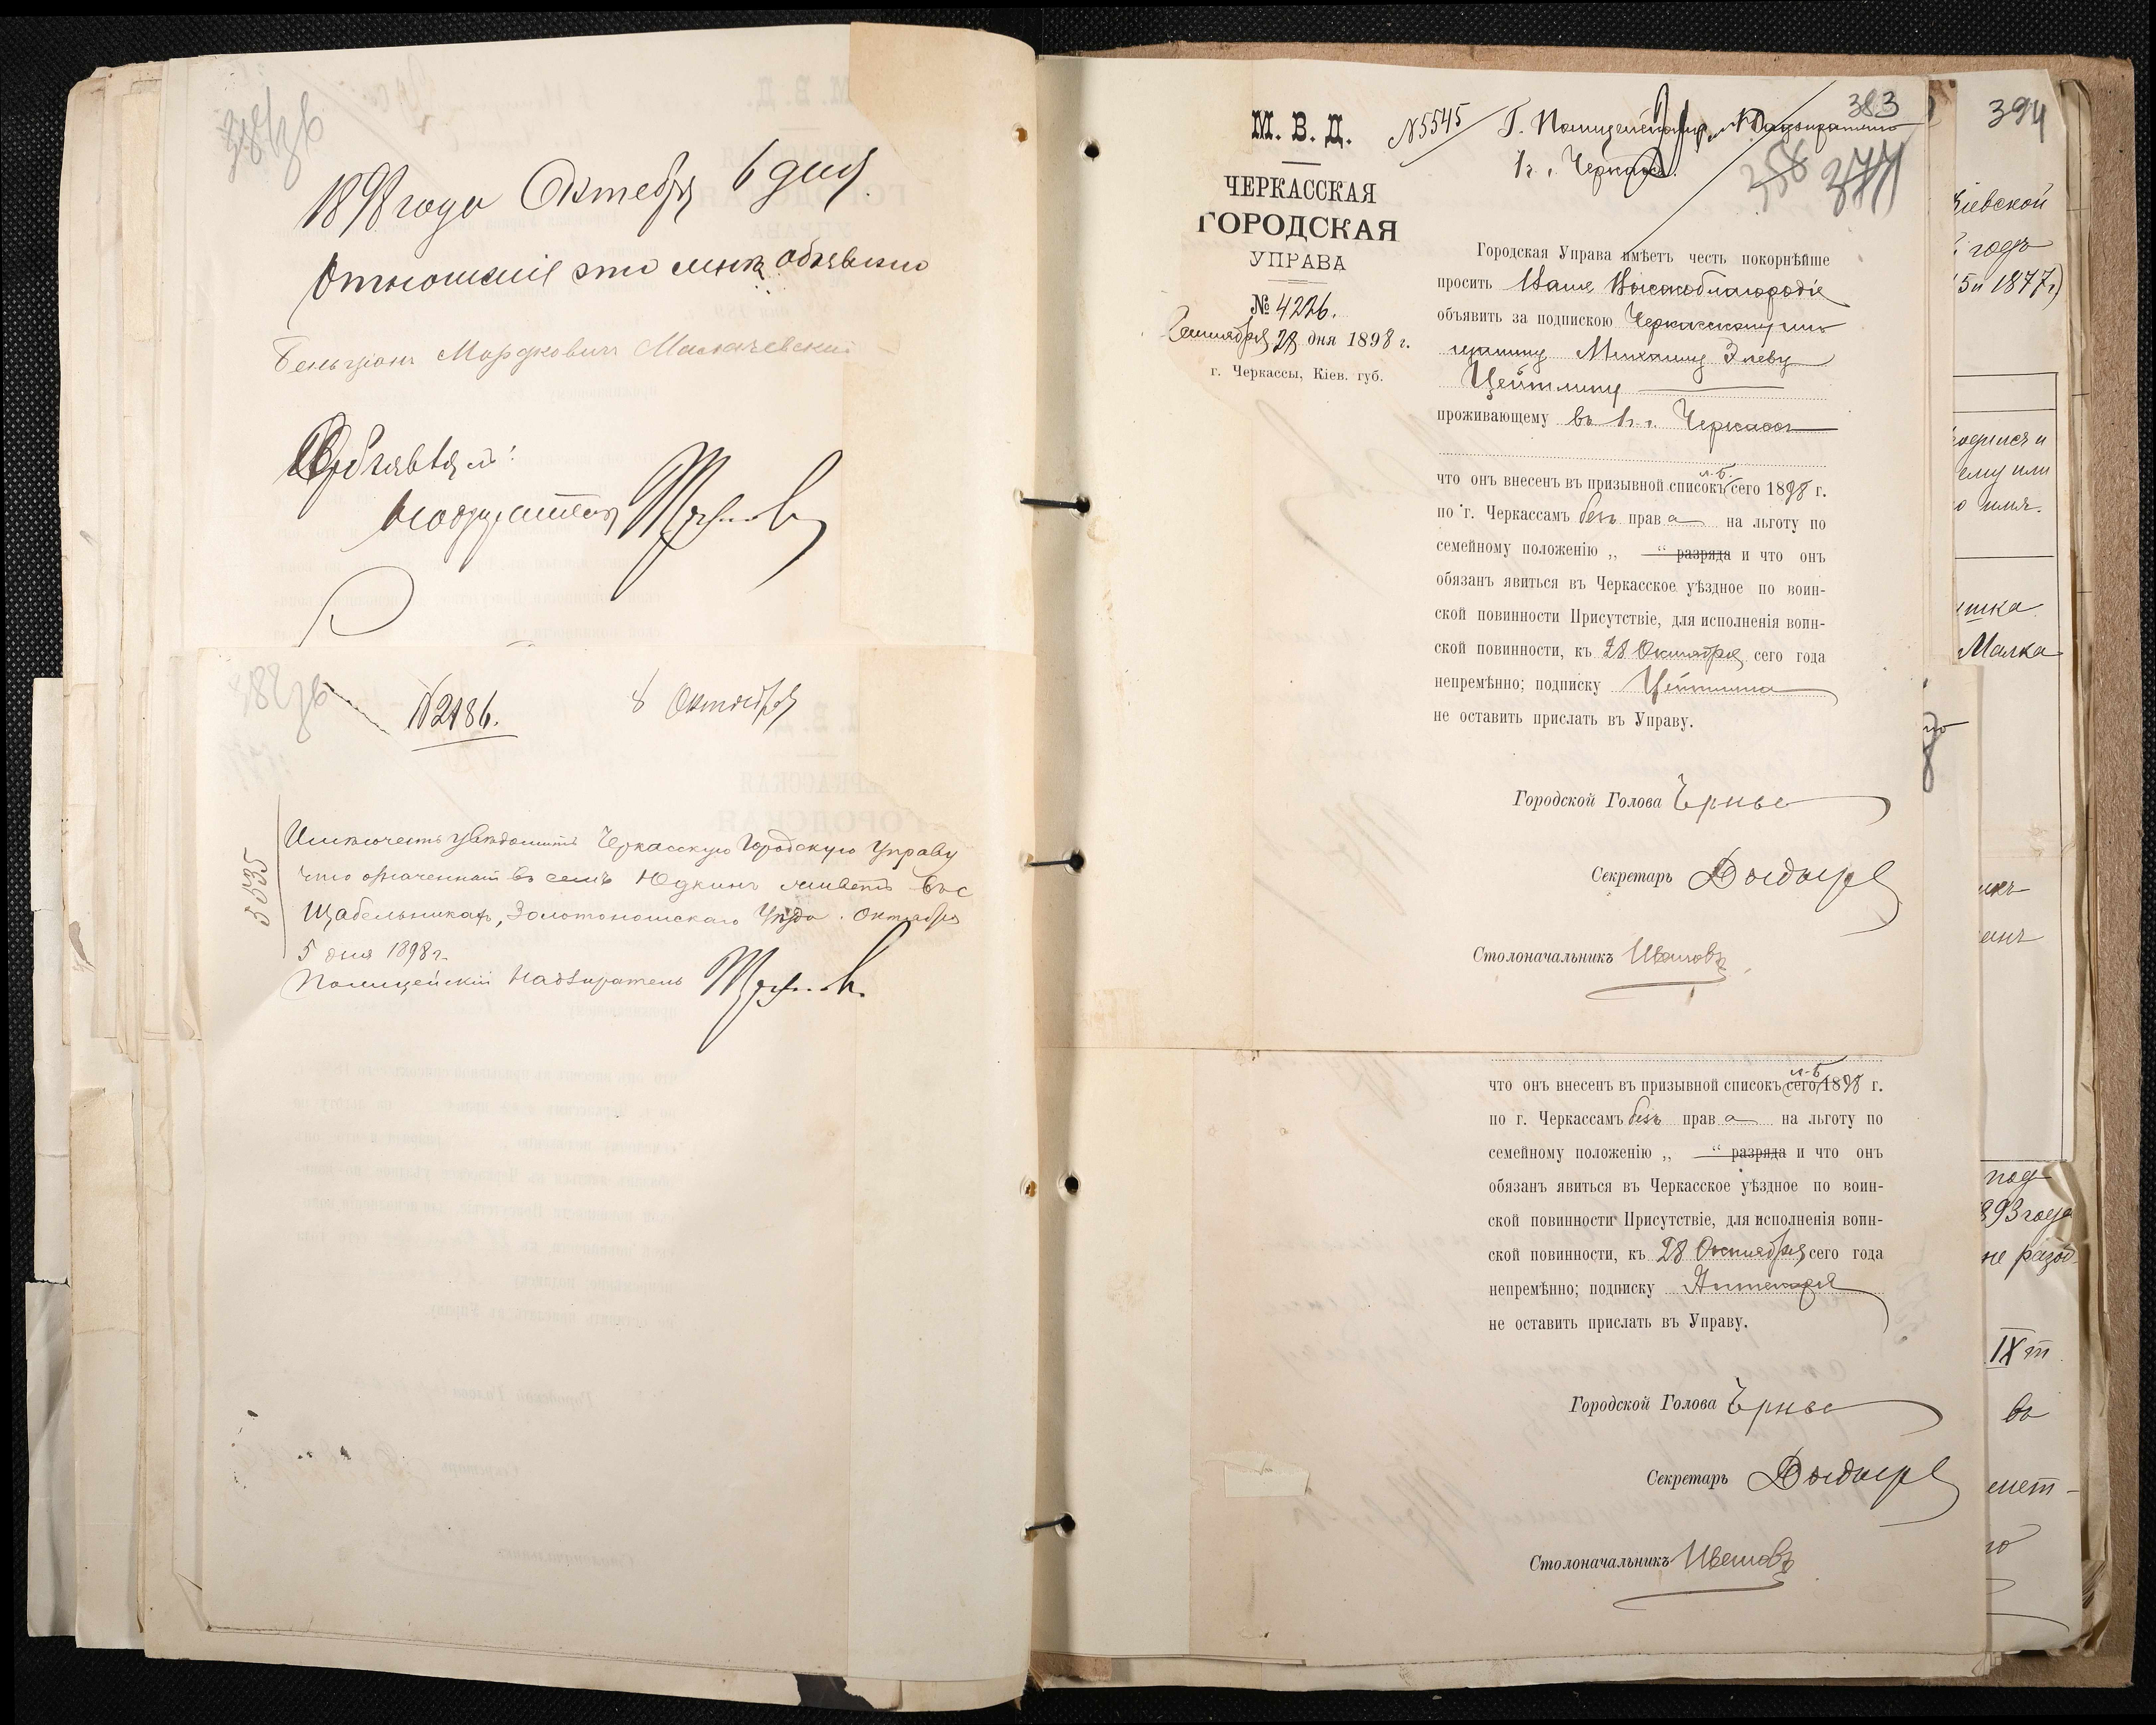 1898 года Октября 6 дня
Отношенія это мнѣ объявлено
Беньціонъ Мордковичъ
Объявилъ:
Надзиратель
№2186.
8 Октября
5535
Имѣю честь увѣдомить Черкасскую Городскую Управу
что означенный въ семъ Юдкинъ живетъ въ с
Щабельникахъ, Золотоношскаго Уѣзда. Октября
5 дня 1898 г.
Полицейскій Надзиратель
М. В. Д.
ЧЕРКАССКАЯ
ГОРОДСКАЯ
УПРАВА
№ 4226.
Сентября 28 дня 1898 г.
г. Черкассы, Кіев. губ.
№5545
383
Г. Полицейскому Надзирателю
г. Черкассъ.
358 377
Городская Управа имѣетъ честь покорнѣйше
просить Ваше Высокоблагородіе
объявить за подпискою Черкасскому мѣ-
щанину Михаилу Элеву
Цейтлину
проживающему въ г. Черкассы
что онъ внесенъ въ призывной списокъ л. Б. сего 1898 г.
по г. Черкассамъ безъ права на льготу по
семейному положенію „ “ разряда и что онъ
обязанъ явиться въ Черкасское уѣздное по воин-
ской повинности Присутствіе, для исполненія воин-
ской повинности, къ 28 Октября сего года
непремѣнно; подписку Цейтлина
не оставить прислать въ Управу.
Городской Голова
Секретарь
Столоначальникъ Ивановъ
что онъ внесенъ въ призывной списокъ л. Б. сего 1898 г.
по г. Черкассамъ безъ права на льготу по
семейному положенію „ “ разряда и что онъ
обязанъ явиться въ Черкасское уѣздное по воин-
ской повинности Присутствіе, для исполненія воин-
ской повинности, къ 28 Октября сего года
непремѣнно; подписку
не оставить прислать въ Управу.
Городской Голова
Секретарь
Столоначальникъ Ивановъ
394
Кіевской
годъ
5 и 1877 г)
ему или
имя.
Малка
под
893 года
не разоб-
IX т
во